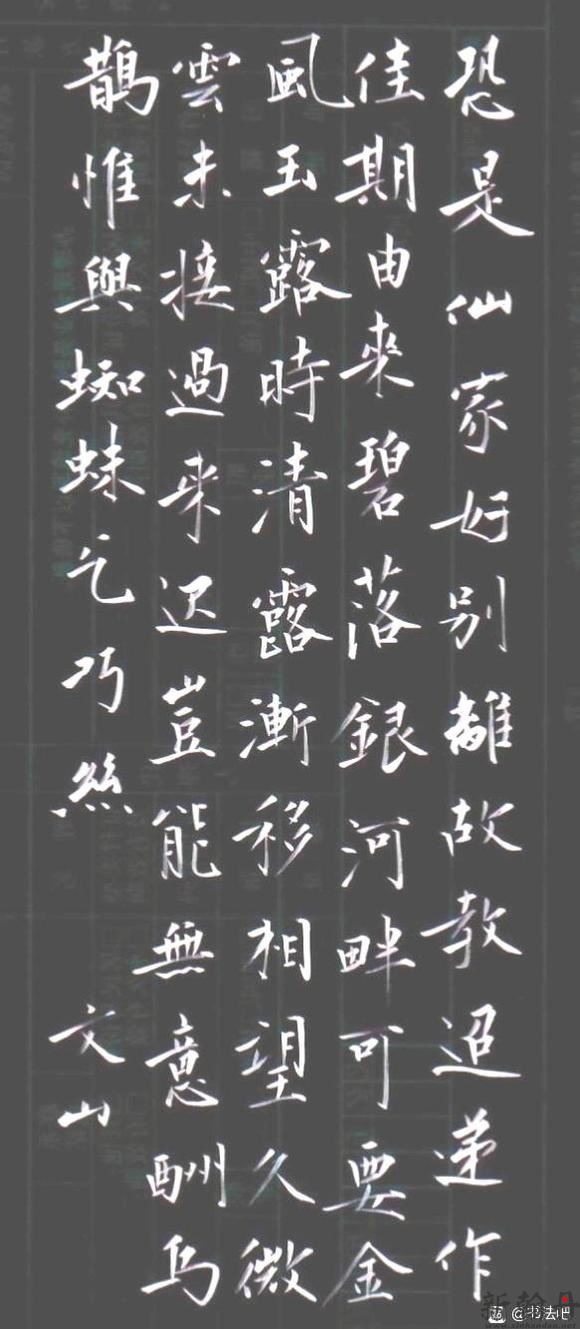 恐是仙家好别離故教迢递作
佳期由來碧落銀河畔可要金
風玉露時清露漸移相望久微
雲未接過来迟豈能無意酬烏
鵲惟與蜘蛛乞巧絲
文山
@书法吧